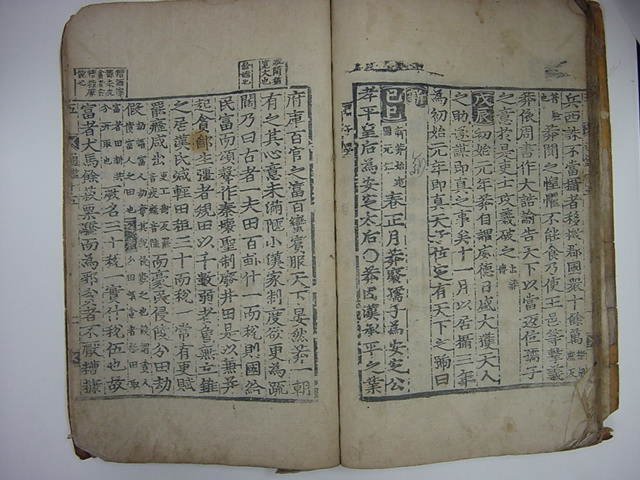 兵西誅不當攝者移檄郡國衆十餘萬
莽聞之惶懼不能食乃使王邑等擊義
莽依周書作大誥諭告天下以當返位孺子
之意於是吏士攻義破之
戊辰 初始元年莽自謂威德日盛大獲天人
之助遂謀即真之事矣十一月以居攝三年
爲初始元年即真天子位定有天下之號曰
新
己巳 新莽始建國元年 春正月莽廢孺子爲安定公
孝平皇后爲安定太后○莽因漢承平之業
府庫百官之富百蠻賓服天下晏然莽一朝
有之其心意未備陿小漢家制度欲更爲疏
闊乃曰古者一夫田百畝什一而稅則國給
民富而頌聲作秦壞聖制廢井田是以兼并
起貪鄙生强者規田以千數弱者曾無立錐
之居漢氏減輕田租三十而稅一常有更賦
罷癃咸出 而豪民侵陵分田劫
假 厥名三十稅一實什稅伍也故
富者犬馬餘菽粟驕而爲邪貧者不厭糟糠